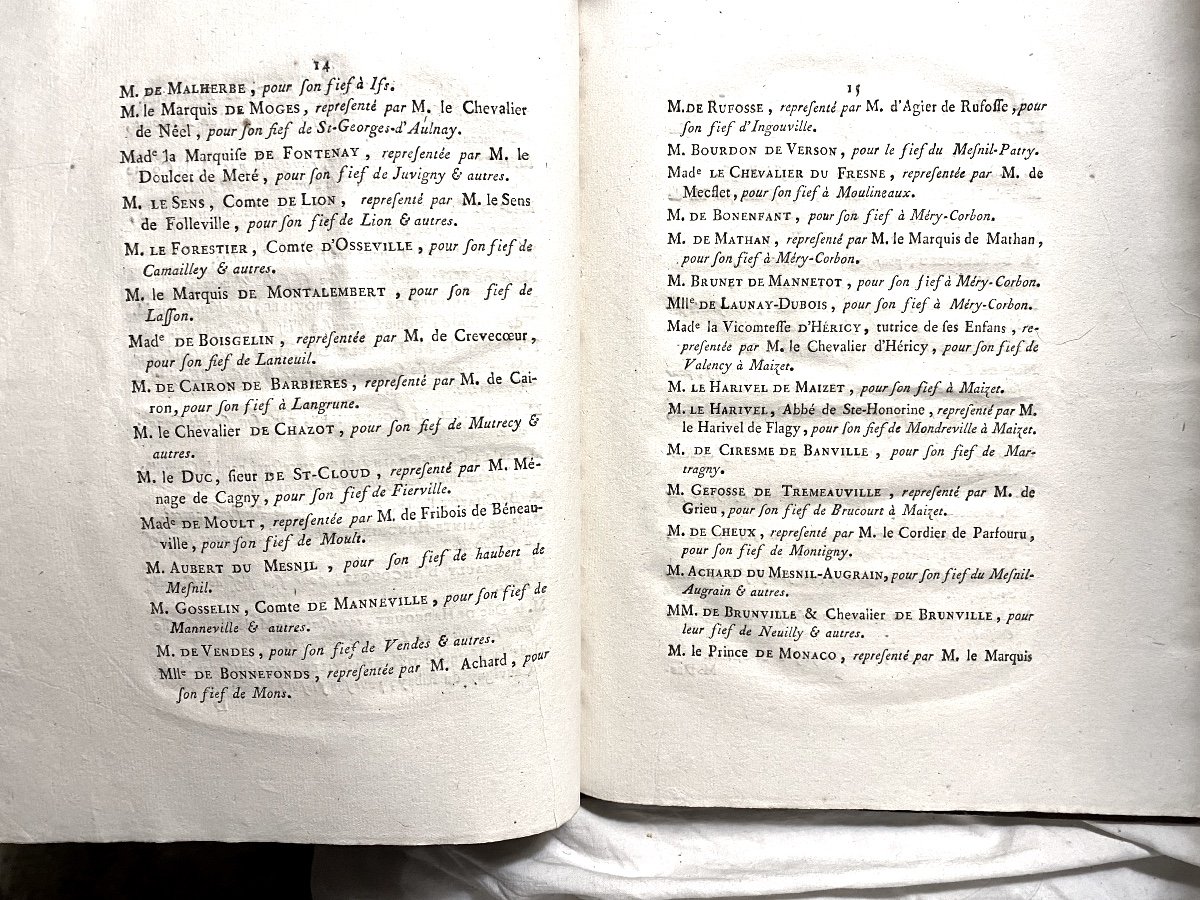 14
M. DE MALHERBE, pour ſon fief à Ifs.
M. le Marquis DE MOGES, repreſenté par M. le Chevalier
de Néel, pour ſon fief de St-Georges-d'Aulnay.
Made la Marquiſe DE FONTENAY, repreſentée par M. le
Doulcet de Meré, pour ſon fief de Juvigny & autres.
M. LE SENS, Comte DE LION, repreſenté par M. le Sens
de Folleville, pour ſon fief de Lion & autres.
M. LE FORESTIER, Comte D'OSSEVILLE, pour ſon fief de
Camailley & autres.
M. le Marquis DE MONTALEMBERT, pour ſon fief de
Laſſon.
Made DE BOISGELIN, repreſentée par M. de Crevecœur,
pour ſon fief de Lanteuil.
M. DE CAIRON DE BARBIERES, repreſenté par M. de Cai-
ron, pour ſon fief à Langrune.
M. le Chevalier DE CHAZOT, pour ſon fief de Mutrecy &
autres.
M. le DUC, ſieur DE ST-CLOUD, repreſenté par M. Mé-
nage de Cagny, pour ſon fief de Fierville.
Made DE MOULT, repreſentée par M. de Fribois de Béneau-
ville, pour ſon fief de Moult.
M. AUBERT DU MESNIL, pour ſon fief de haubert de
Meſnil.
M. GOSSELIN, Comte DE MANNEVILLE, pour ſon fief de
Manneville & autres.
M. DE VENDES, pour ſon fief de Vendes & autres.
Mlle DE BONNEFONDS, repreſentée par M. Achard, pour
ſon fief de Mons.
15
M. DE RUFOSSE, repreſenté par M. d'Agier de Rufoſſe, pour
ſon fief d'Ingouville.
M. BOURDON DE VERSON, pour le fief du Meſnil-Patry.
Made LE CHEVALIER DU FRESNE, repreſentée par M. de
Mecflet, pour ſon fief à Moulineaux.
M. DE BONENFANT, pour ſon fief à Méry-Corbon.
M. DE MATHAN, repreſenté par M. le Marquis de Mathan,
pour ſon fief à Méry-Corbon.
M. BRUNET DE MANNETOT, pour ſon fief à Méry-Corbon.
Mlle DE LAUNAY-DUBOIS, pour ſon fief à Méry-Corbon.
Made la Vicomteſſe D'HÉRICY, tutrice de ſes Enfans, re-
preſentée par M. le Chevalier d'Héricy, pour ſon fief de
Valency à Maizet.
M. LE HARIVEL DE MAIZET, pour ſon fief à Maizet.
M. LE HARIVEL, Abbé de Ste-Honorine, repreſenté par M.
le Harivel de Flagy, pour ſon fief de Mondreville à Maizet.
M. DE CIRESME DE BANVILLE, pour ſon fief de Mar-
tragny.
M. GEFOSSE DE TREMEAUVILLE, repreſenté par M. de
Grieu, pour ſon fief de Brucourt à Maizet.
M. DE CHEUX, repreſenté par M. le Cordier de Parfouru,
pour ſon fief de Montigny.
M. ACHARD DU MESNIL-AUGRAIN, pour ſon fief du Meſnil-
Augrain & autres.
MM. DE BRUNVILLE & Chevalier DE BRUNVILLE, pour
leur fief de Neuilly & autres.
M. le Prince DE MONACO, repreſenté par M. le Marquis